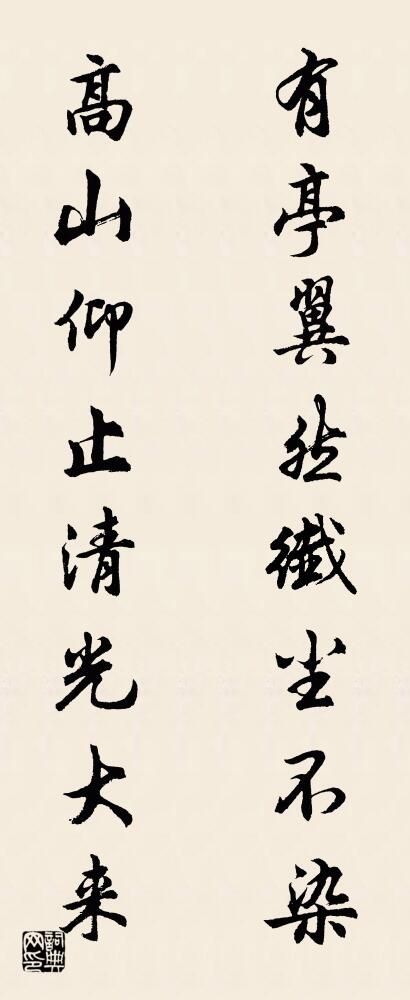 有亭翼然纖尘不染
高山仰止清光大来
词典网印